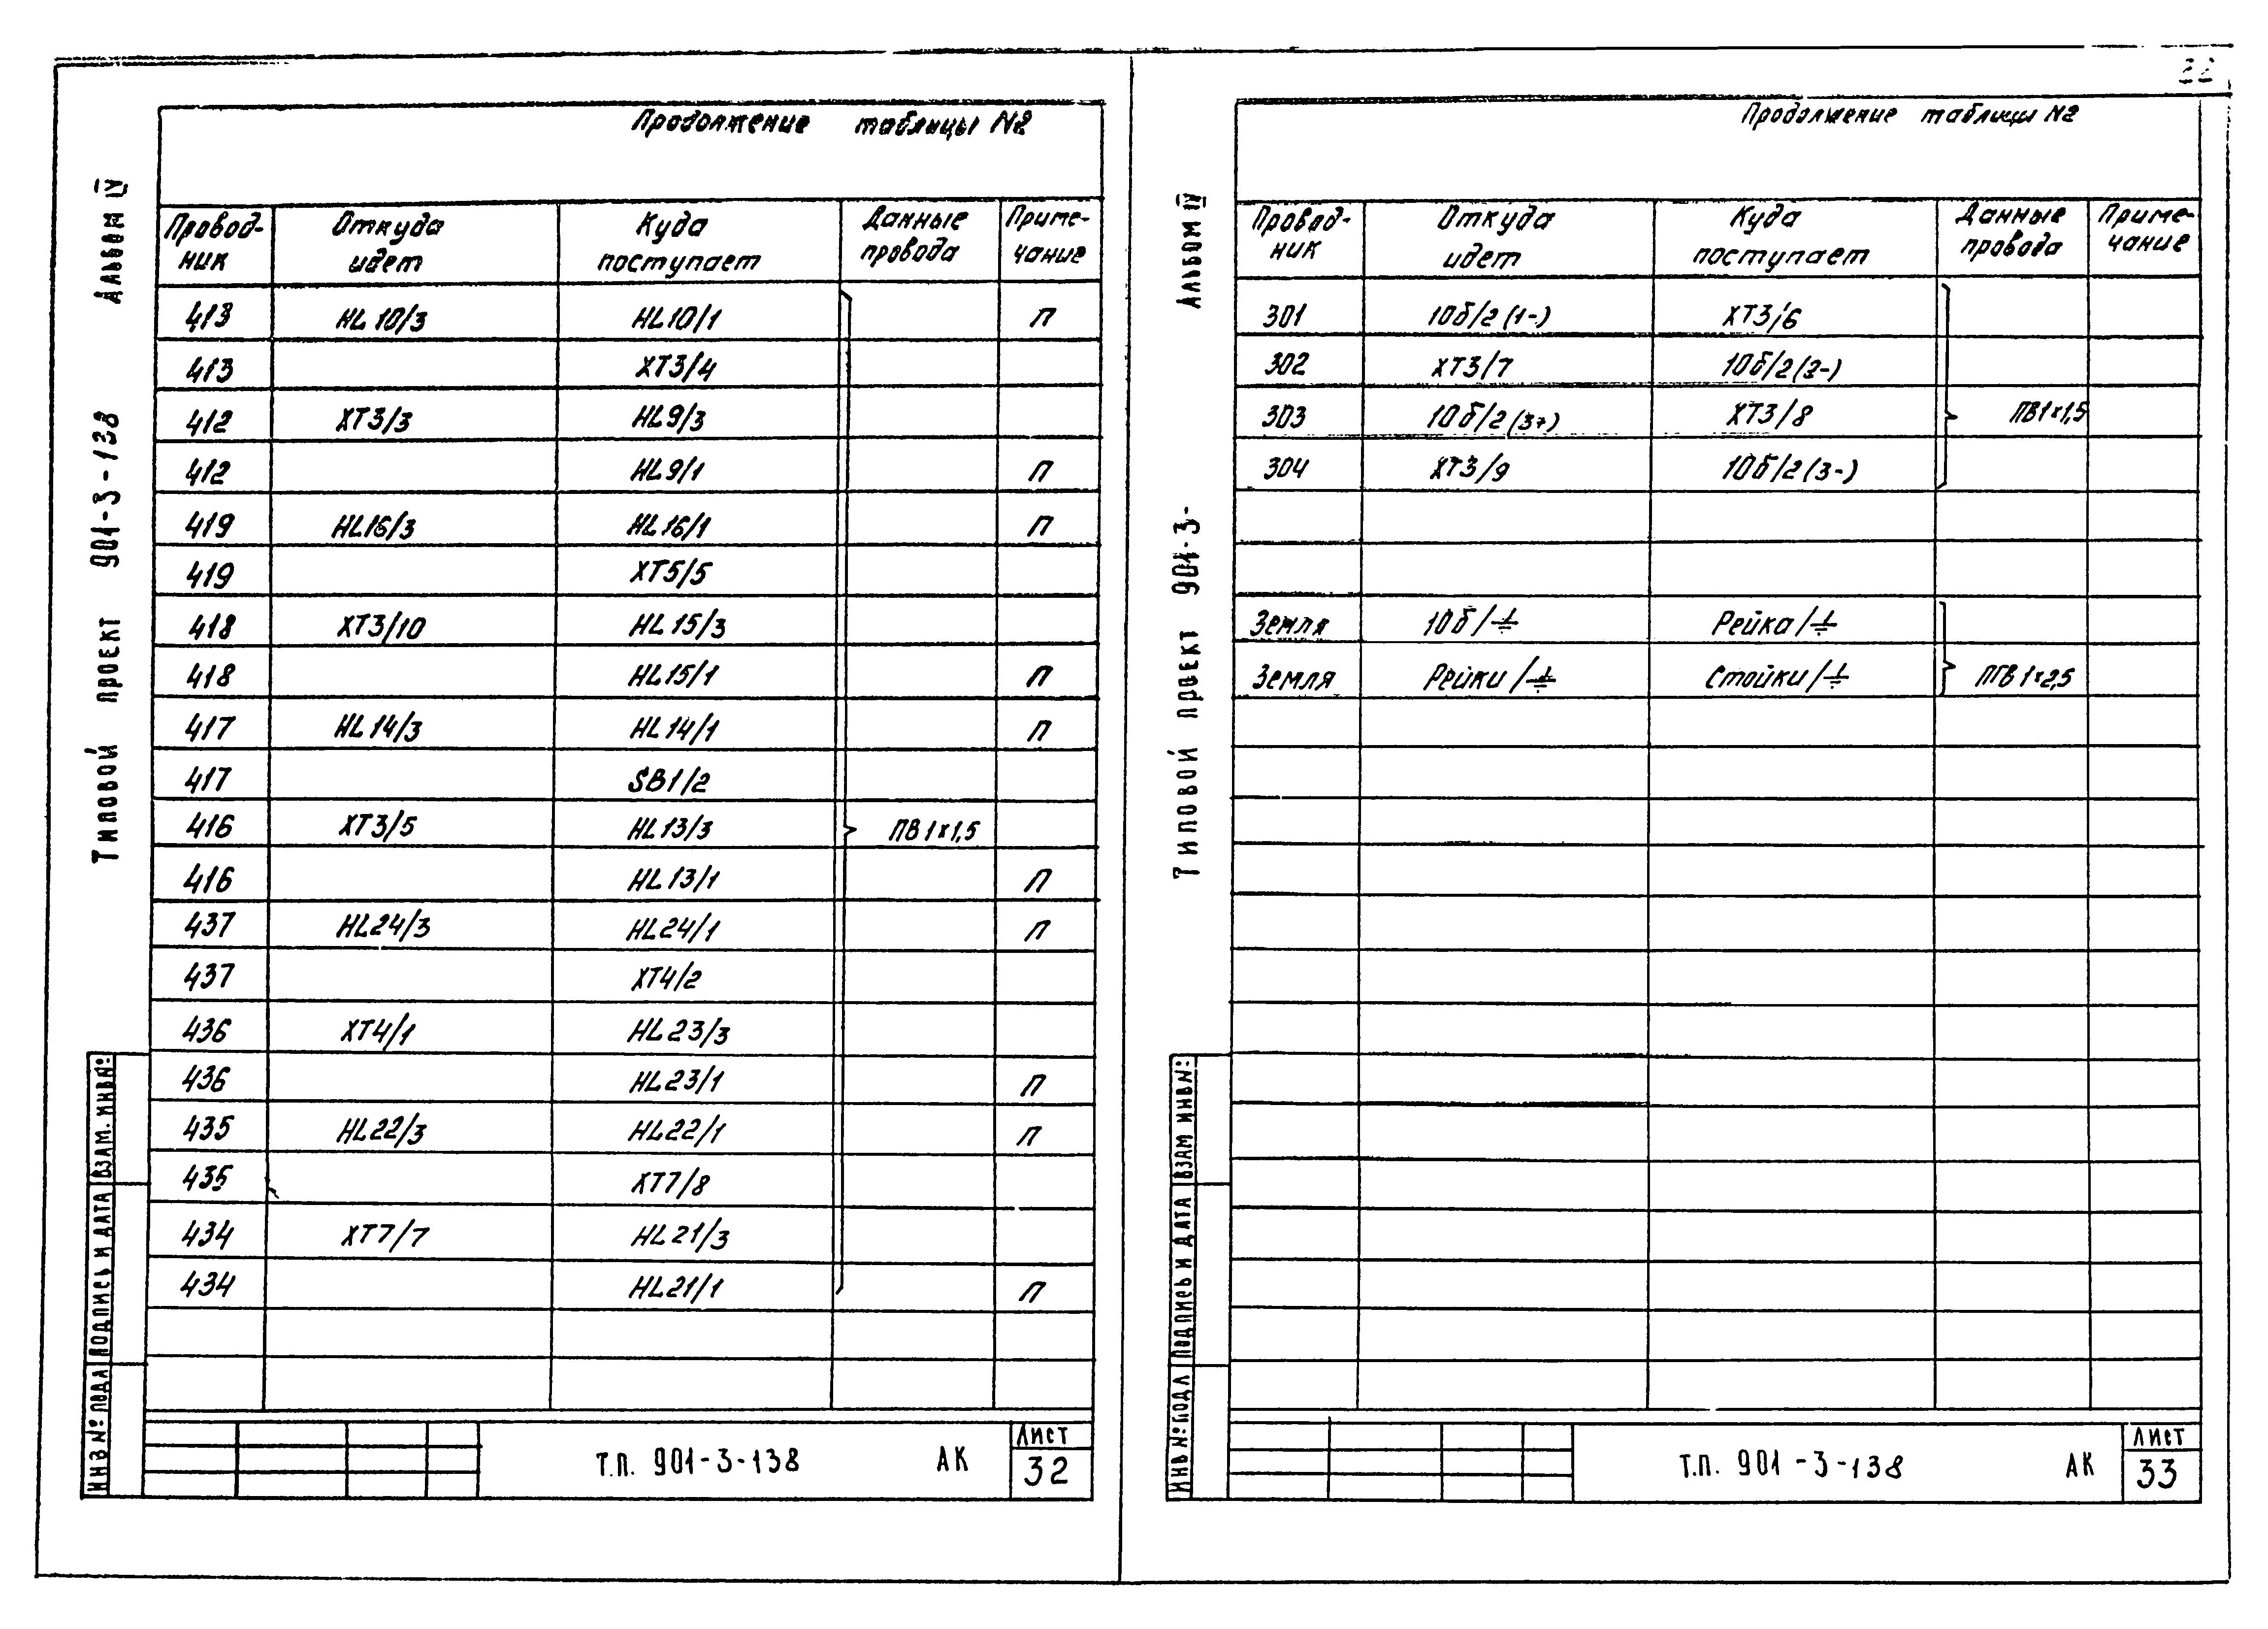 32
Продолжение таблицы N2
Провод-ник Откуда идет Куда поступает Данные провода Приме-чание
413 HL10/3 HL10/1 П
413 XT3/4
412 XT3/3 HL9/3
412 HL9/1 П
419 HL16/3 HL16/1 П
419 XT5/5
418 XT3/10 HL15/3
418 HL15/1 П
417 HL14/3 HL14/1 П
417 SB1/2
416 XT3/5 HL13/3 ПВ1×1,5
416 HL13/1 П
437 HL24/3 HL24/1 П
437 XT4/2
436 XT4/1 HL23/3
436 HL23/1 П
435 HL22/3 HL22/1 П
435 XT7/8
434 XT7/7 HL21/3
434 HL21/1 П
Типовой проект 901-3-138 Альбом IV
ИНВ № ПОДЛ ПОДПИСЬ И ДАТА ВЗАМ. ИНВ №:
Т.П. 901-3-138 АК
Лист
32
Продолжение таблицы N2
Провод-ник Откуда идет Куда поступает Данные провода Приме-чание
301 10б/2(1-) XT3/6
302 XT3/7 10б/2(2-)
303 10б/2(3+) XT3/8 ПВ1×1,5
304 XT3/9 10б/2(3-)
Земля 10б/⏚ Рейка/⏚
Земля Рейки/⏚ Стойки/⏚ ПГВ1×2,5
Типовой проект 901-3- Альбом IV
ИНВ № ПОДЛ ПОДПИСЬ И ДАТА ВЗАМ ИНВ №:
Т.П. 901-3-138 АК
Лист
33